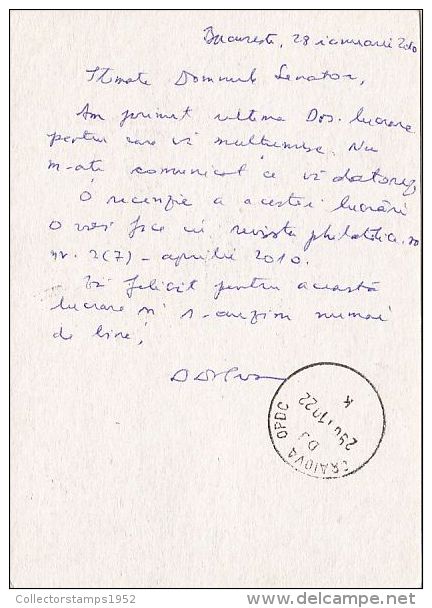 Bucuresti, 28 ianuarie 2010
Stimate Domnule Senator,
Am primit ultima Dvs. lucrare
pentru care vă mulțumesc. Nu
m-ați comunicat ce vă datorez.
O recenzie a acestei lucrări
o voi face în revista philatelica.ro
nr. 2(7) - aprilie 2010.
Vă felicit pentru această
lucrare și s-auzim numai
de bine!
CRAIOVA OPDC
DJ
Collectorstamps1952
delcampe.net